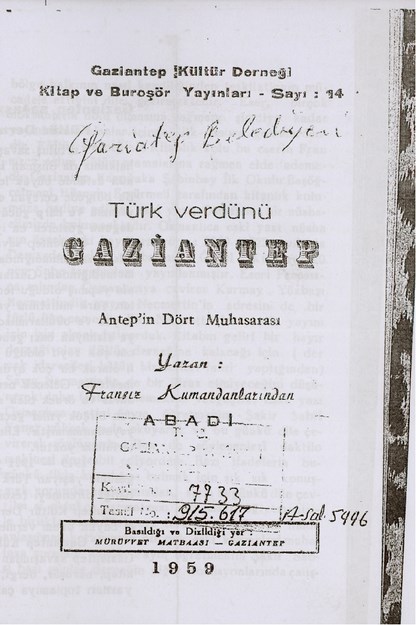 Gaziantep Kültür Derneği
Kitap ve Buroşör Yayınları - Sayı : 14
Gaziantep Belediyesi
Türk verdünü
GAZİANTEP
Antep'in Dört Muhasarası
Yazan :
Fransız Kumandanlarından
ABADİ
T. C.
7733
Tasnif No. : 915.617
A-Sal. 5996
Basıldığı ve Dizildiği yer :
MÜRÜVVET MATBAASI — GAZİANTEP
1959